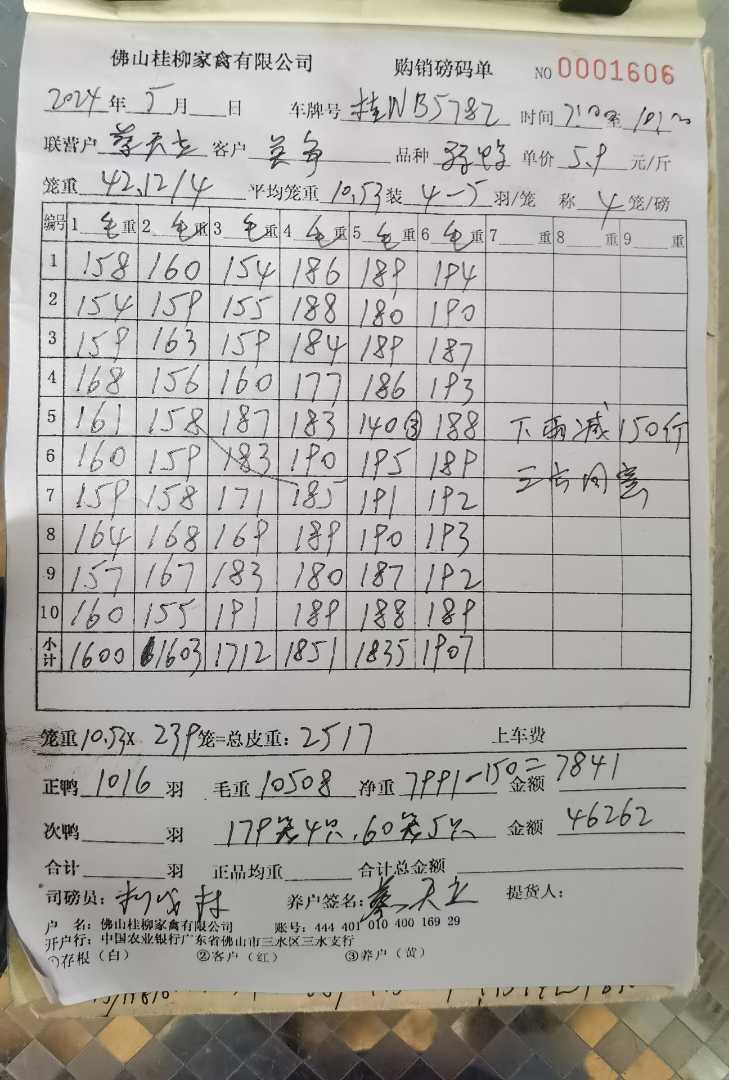 佛山桂柳家禽有限公司 购销磅码单 NO 0001606
2024年 5月 日 车牌号 桂NB5782 时间 至
联营户 客户 品种 单价 5.9 元/斤
笼重 42.12/4 平均笼重 10.53 装 4-5 羽/笼 称 4 笼/磅
编号 1 毛重 2 毛重 3 毛重 4 毛重 5 毛重 6 毛重 7 重 8 重 9 重
1 158 160 154 186 189 194
2 154 159 155 188 180 190
3 159 163 159 184 189 187
4 168 156 160 177 186 193
5 161 158 187 183 140③ 188 下雨减150斤
6 160 159 183 190 195 189
7 159 158 171 185 191 192
8 164 168 169 189 190 193
9 157 167 183 180 187 192
10 160 155 191 189 188 189
小计 1600 1603 1712 1851 1835 1907
笼重 10.53X 239 笼=总皮重: 2517 上车费
正鸭 1016 羽 毛重 10508 净重 7991-150=7841 金额
次鸭 羽 179笼4只.60笼5只 金额 46262
合计 羽 正品均重 合计总金额
司磅员: 养户签名: 提货人:
户 名: 佛山桂柳家禽有限公司 账号: 444 401 010 400 169 29
开户行: 中国农业银行广东省佛山市三水区三水支行
①存根(白) ②客户(红) ③养户(黄)